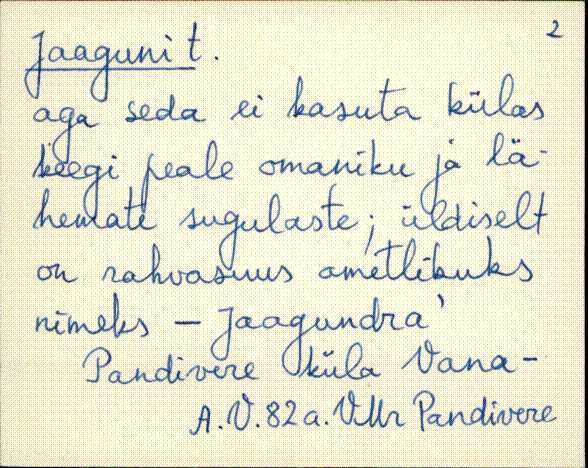 2
Jaaguni t.
aga seda ei kasuta külas
keegi peale omaniku ja lä-
hemate sugulaste; üldiselt
on rahvasuus ametlikuks
nimeks – Jaagundra'
Pandivere küla Vana-
A.V. 82 a. VMr Pandivere